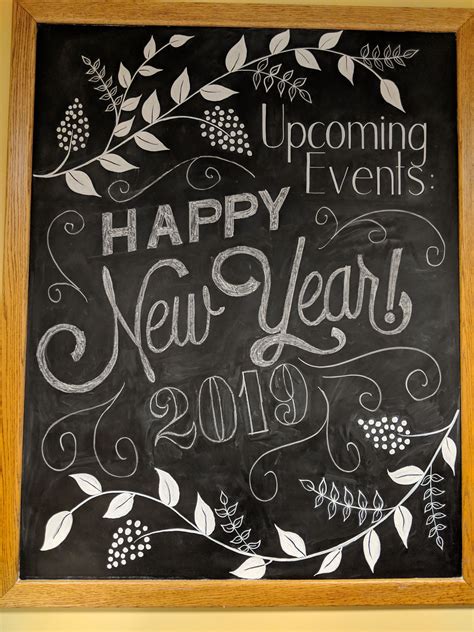 Upcoming
Events:
HAPPY
New Year!
2019